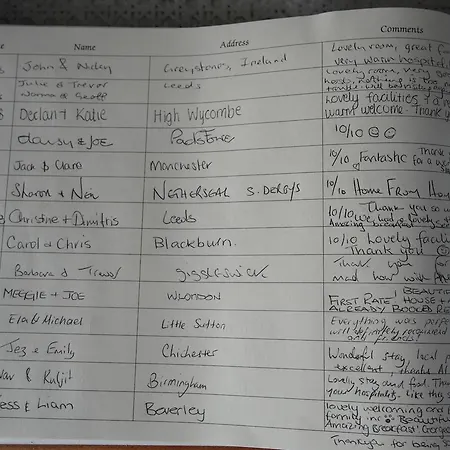 Name Address Comments
John & Nicky Greystones, Ireland Lovely room, great
very warm hospital
Julie & Trevor Leeds Lovely room, very good
Norma & Geoff host, nothing is too
Declan & Katie High Wycombe Lovely facilities &
warm welcome. Thank
daisy & JOE Padstow 10/10
Jack & Clare Manchester 10/10 Fantastic Thank
for a
Sharon & Nev NETHERSEAL S. DERBYS 10/10 HOME FROM HOM
Christine + Dimitris Leeds Thank you so
10/10 We had a lovely
Amazing breakfast
Carol & Chris Blackburn. 10/10 Lovely facili
Thank you
Barbara & Trevor GIGGLESWICK Thank you for
MEGGIE + JOE W LONDON BEAUTI
FIRST RATE! HOUSE +
ALREADY BOOKED
Ela & Michael Little Sutton Everything was perfe
will definitely recommend
and friends!
Jez & Emily Chichester Wonderful stay, local
excellent, thanks
& Kuljit Birmingham Lovely stay and food. Than
your hospitality. Like
ess & Liam Beverley lovely welcoming and
family inc Beautiful
Amazing Breakfast!
Thankyou for being